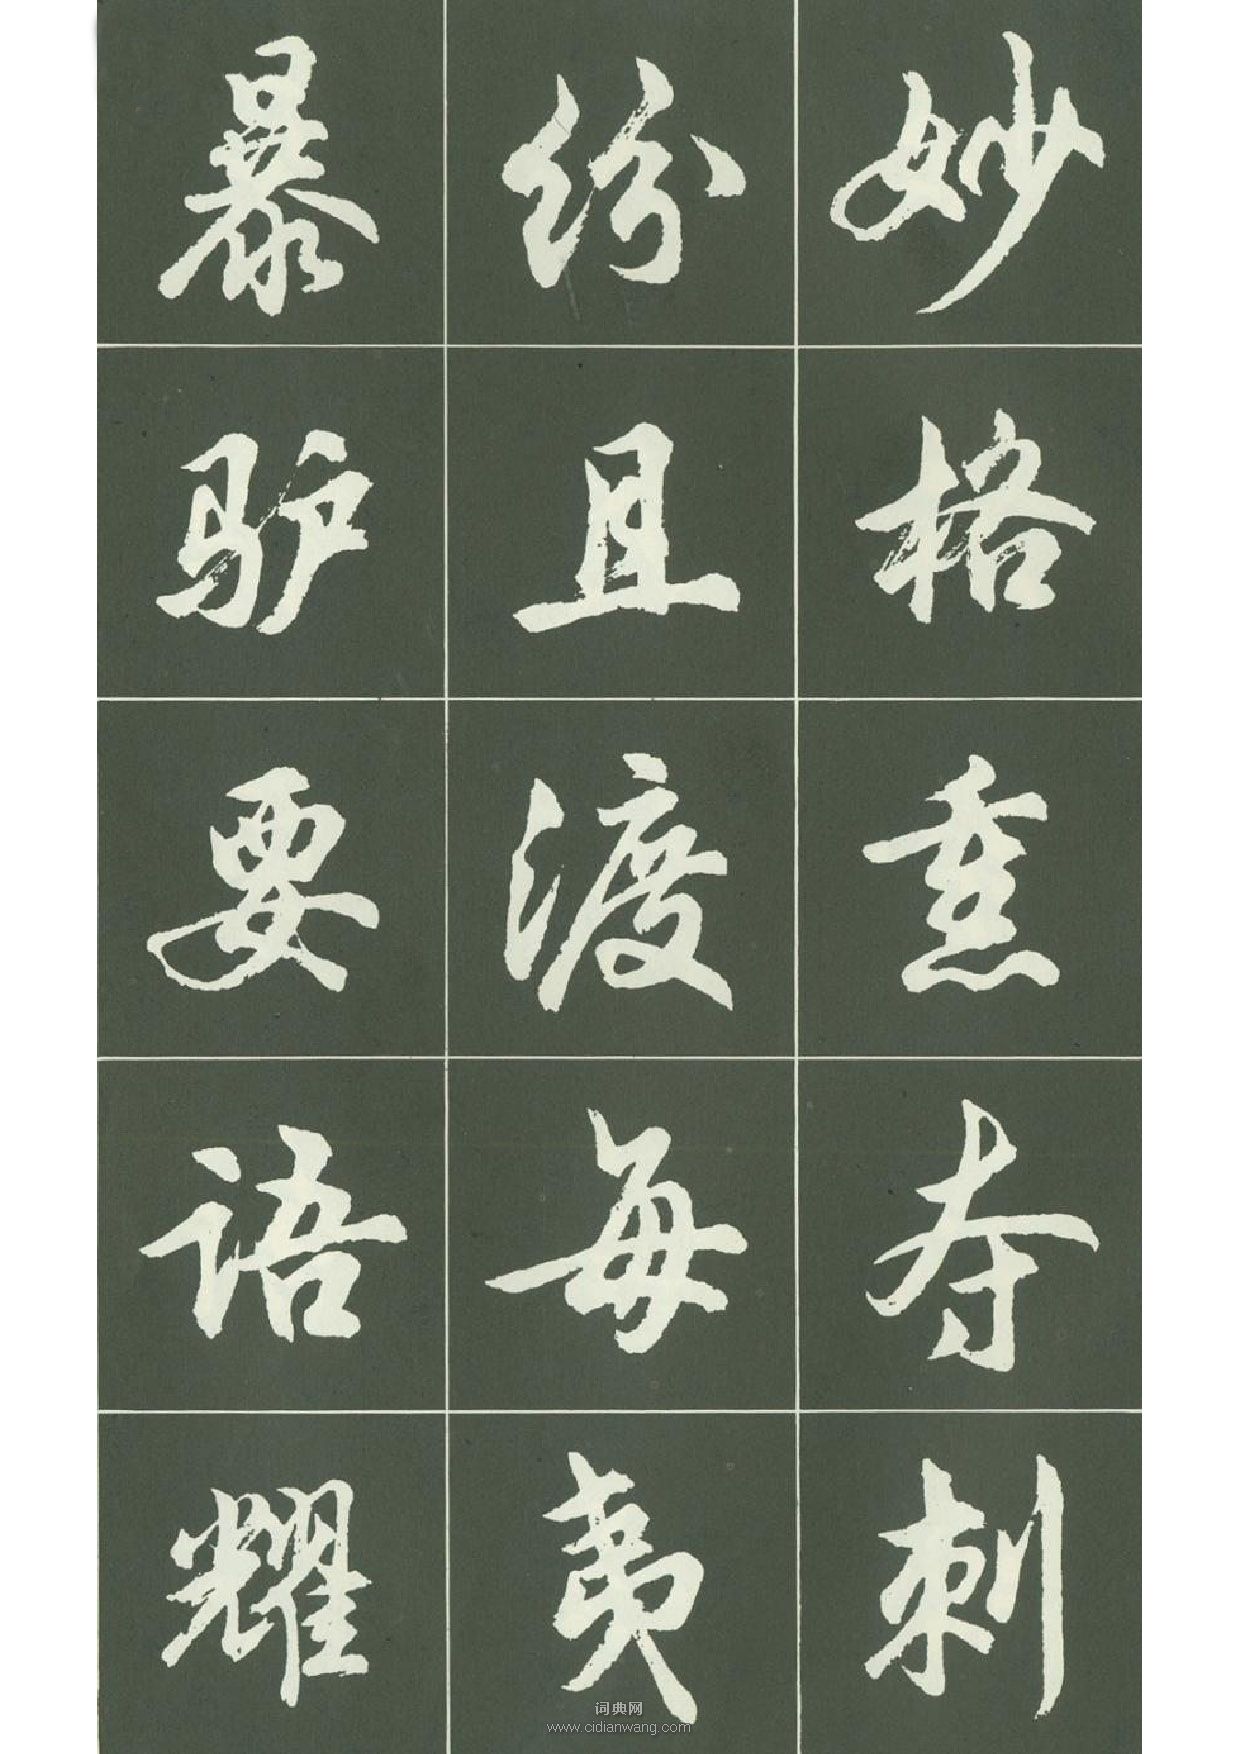 妙格熏夺刺
纷且渡每夷
暴驴要语耀
词典网
www.cidianwang.com